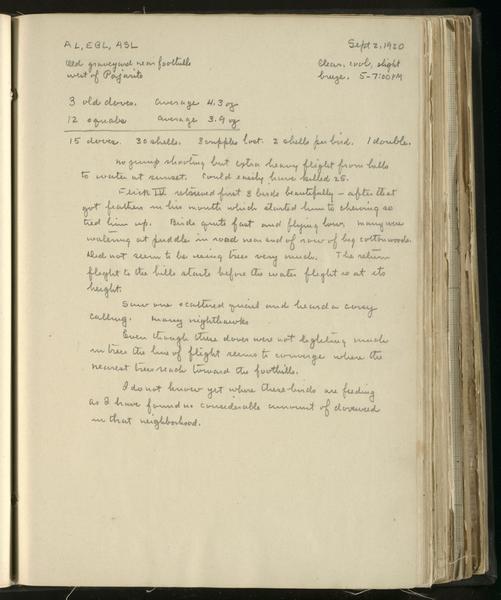 AL, EBL, ASL Sept 2, 1920
Old graveyard near foothills Clear, cool, slight
west of Pajarito breeze. 5-7:00 PM
3 old doves. average 4.3 oz
12 squabs average 3.9 oz
15 doves. 30 shells. 3 cripples lost. 2 shells per bird. 1 double.
No jump shooting but extra heavy flight from hills
to water at sunset. Could easily have killed 25.
Flick III retrieved first 8 birds beautifully - after that
got feathers in his mouth which started him to chewing so
tied him up. Birds quite fast and flying low. Many were
watering at puddle in road near end of row of big cottonwoods.
Did not seem to be using trees very much. The return
flight to the hills starts before the water flight is at its
height.
Saw one scattered quail and heard a covey
calling. Many nighthawks
Even though these doves were not lighting much
in trees the line of flight seems to converge where the
nearest trees reach toward the foothills.
I do not know yet where these birds are feeding
as I have found no considerable amount of doveweed
in that neighborhood.